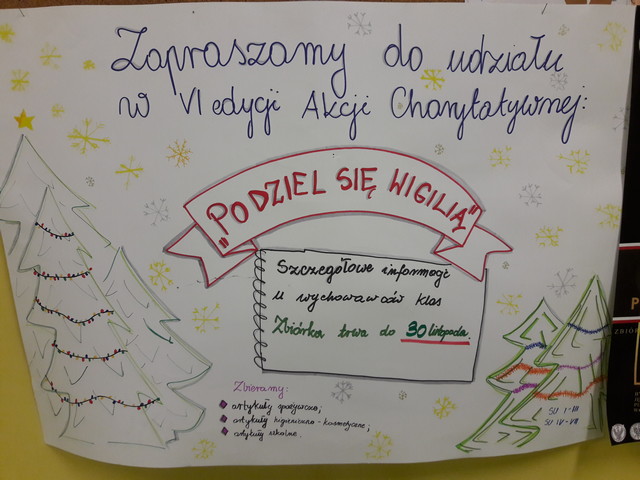 Zapraszamy do udziału
w VI edycji Akcji Charytatywnej:
"PODZIEL SIĘ WIGILIĄ"
Szczegółowe informacje
u wychowawców klas
Zbiórka trwa do 30 listopada.
Zbieramy:
artykuły spożywcze;
artykuły higieniczno-kosmetyczne;
artykuły szkolne.
SU I-III
SU IV-VIII
P
ZBIÓR